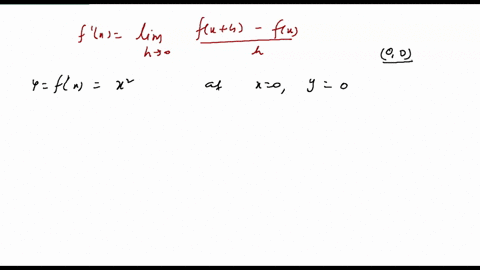 f'(x) = lim h→0 f(x+h) - f(x) / h
(0, 0)
y = f(x) = x² at x=0, y = 0